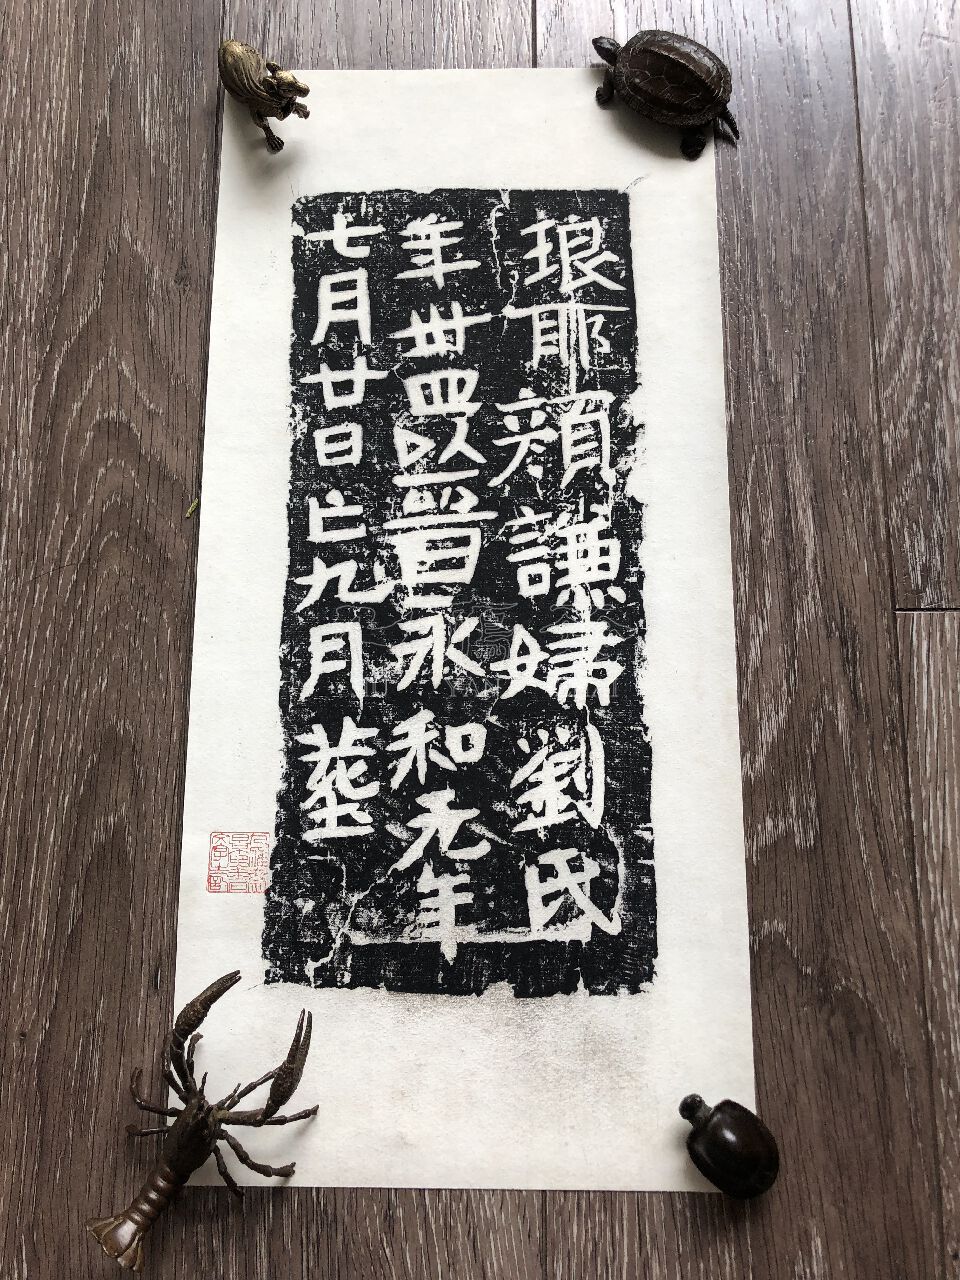 琅耶顔謙婦劉氏
年卅四以晉永和元年
七月廿日亡九月葬